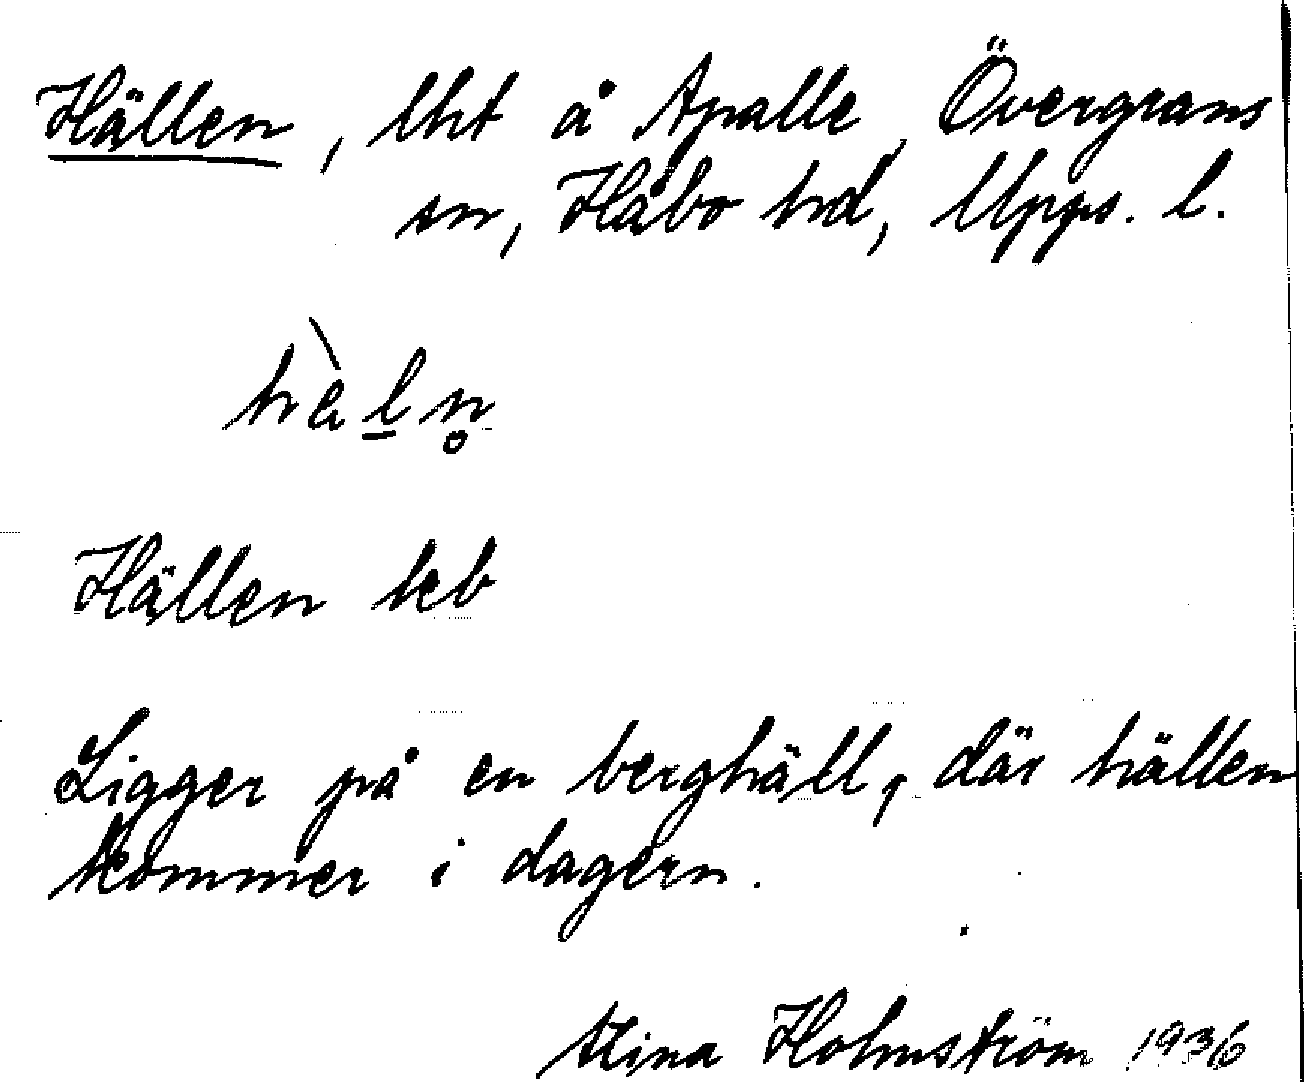 Hällen, lht å Apalle, Övergrans
sn, Håbo hd, Upps. l.
hàl̲n̥
Hällen heb
Ligger på en berghäll, där hällen
kommer i dagern.
Mina Holmström 1936